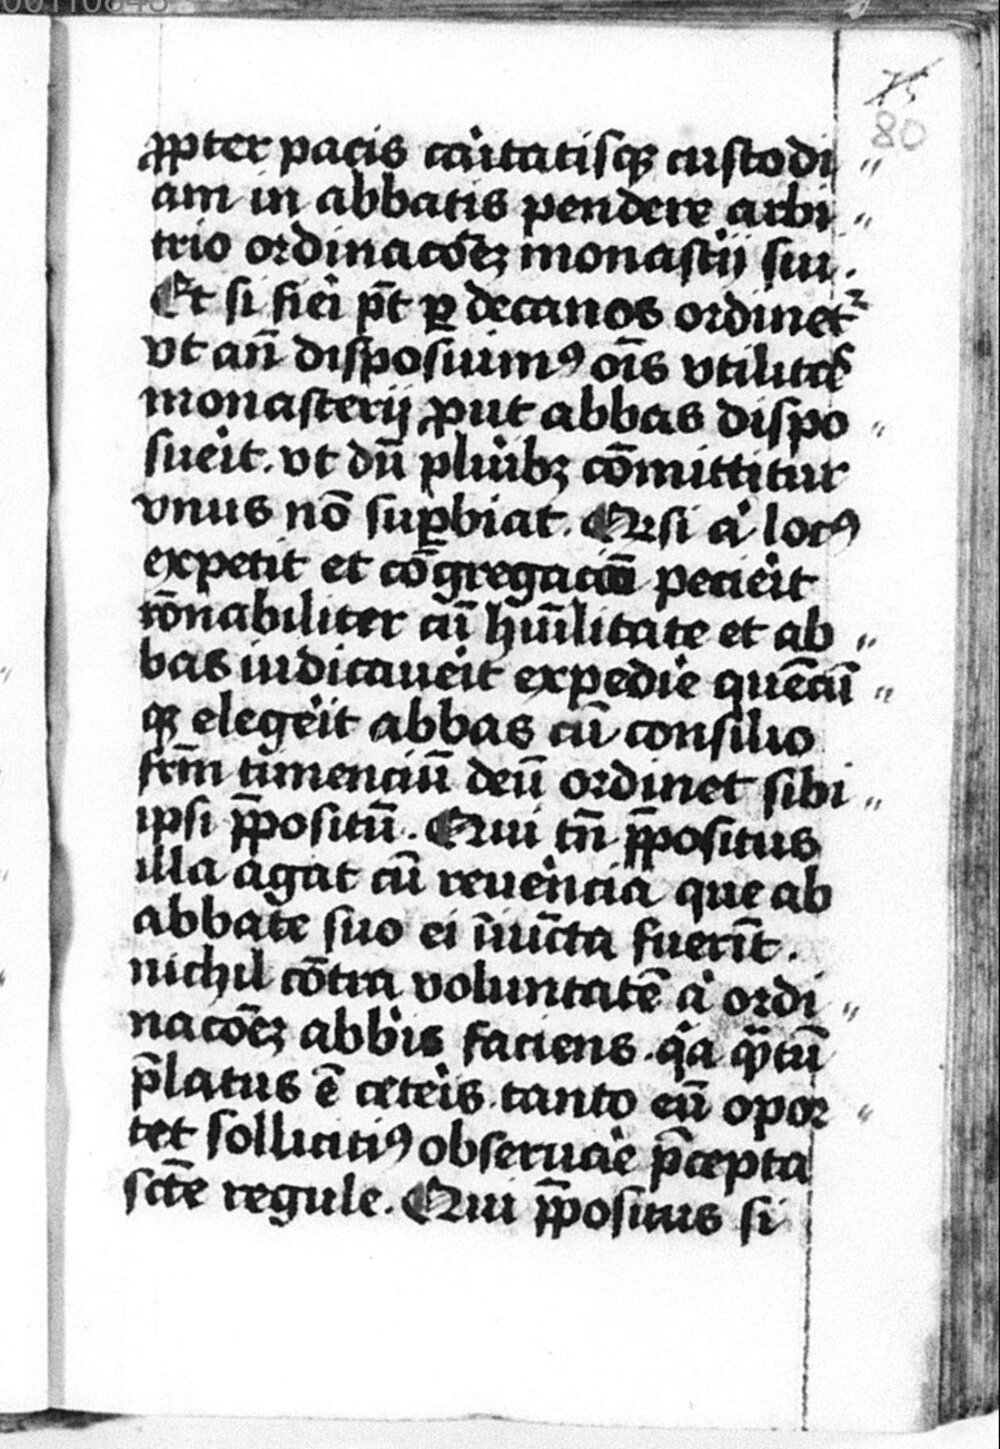 00110848
75
80
ꝓpter pacis caritatisqꝫ custodi〃
am in abbatis pendere arbi〃
trio ordinacōeꝫ monastij sui.
Et si fiei p̄t ꝑ decanos ordinet᷑
vt an̄ disposuimꝰ oīs vtilitas
monasterij ꝓut abbas dispo〃
sueit. vt dū pluibꝫ cōmittitur
vnus nō suꝑbiat. Qꝛsi a locꝰ
expetit et cōgregacio pecieit
rōnabiliter cū hūilitate et ab〃
bas iudicaueit expedie quēcū〃
qꝫ elegeit abbas cū consilio
frm̄ timenciū deū ordinet sibi〃
ipsi p̄positū. Qui tn̄ p̄positus
illa agat cū reuencia que ab
abbate suo ei īiūcta fuerīt.
nichil cōtra voluntatē a ordi〃
nacōeꝫ abbis faciens. qa qͣtū
p̄latus ē ceteis tanto eū opoꝛ〃
tet sollicitiꝰ obseruae p̄cepta
scē regule. Qui p̄positus si